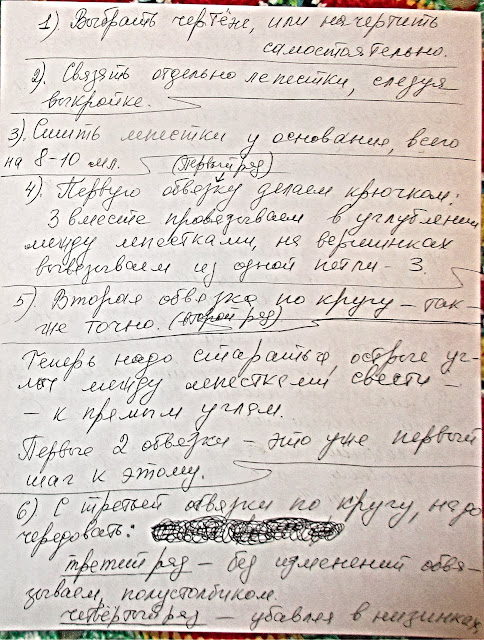 1) Выбрать чертёж, или начертить
самостоятельно.
2) Связать отдельно лепестки, следуя
выкройке.
3) Сшить лепестки у основания, всего
на 8-10 мл. (Первый ряд)
4) Первую обвязку делаем крючком:
3 вместе провязываем в углублении
между лепестками, на вершинках
вывязываем из одной петли - 3.
5) Вторая обвязка по кругу - так-
же точно. (второй ряд)
Теперь надо стараться острые уг-
лы между лепестками, свести -
- к прямым углам.
Первые 2 обвязки - это уже первый
шаг к этому.
6) С третьей обвязки по кругу, надо
чередовать:
третий ряд - без изменений обвя-
зываем, полустолбиком.
четвёртый ряд - убавляя в низинках,